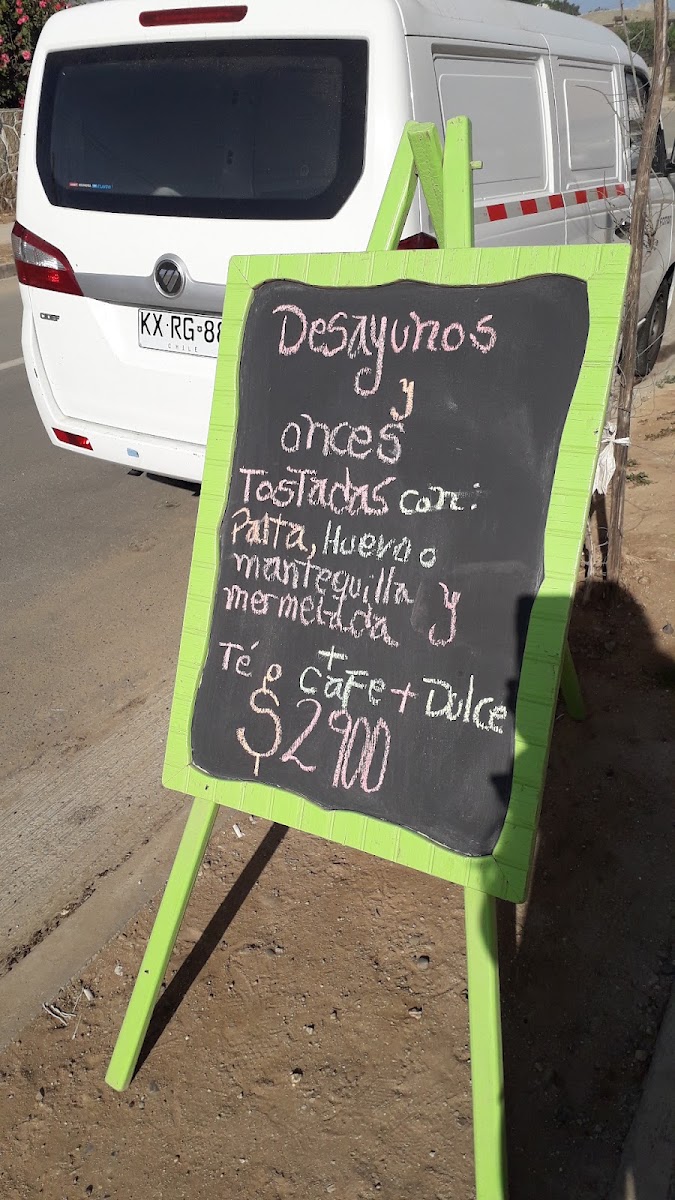 KX·RG·88
CHILE
Desayunos
y
onces
Tostadas con:
Palta, Huevo o
mantequilla y
mermelada
+
Té o café + Dulce
$2900